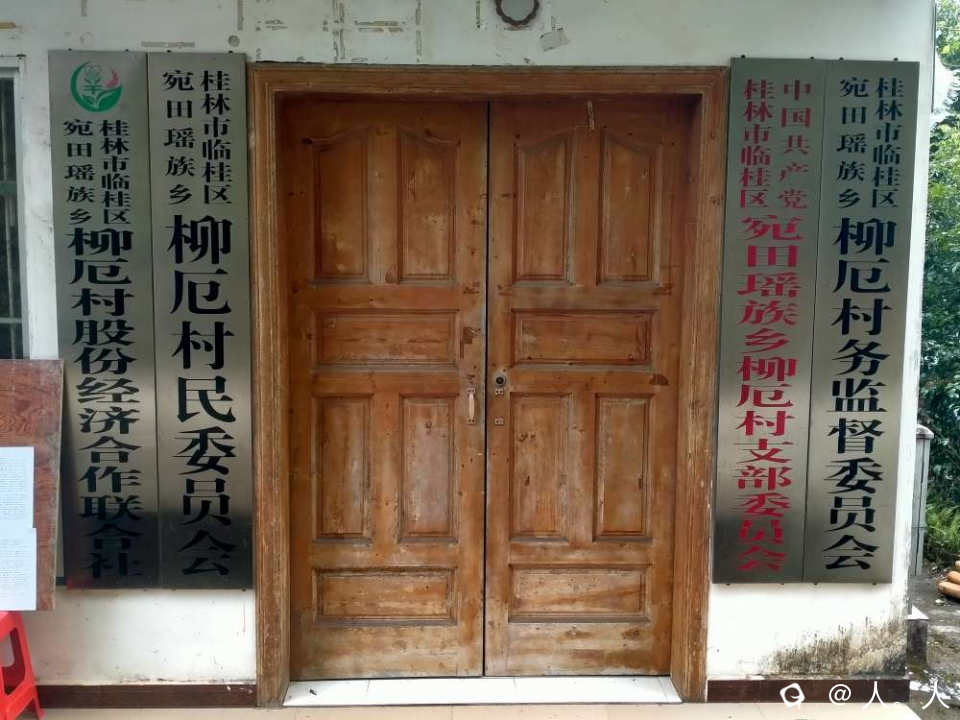 桂林市临桂区
宛田瑶族乡
柳厄村股份经济合作联合社
桂林市临桂区
宛田瑶族乡
柳厄村民委员会
中国共产党
桂林市临桂区
宛田瑶族乡柳厄村支部委员会
桂林市临桂区
宛田瑶族乡
柳厄村务监督委员会
@人。人